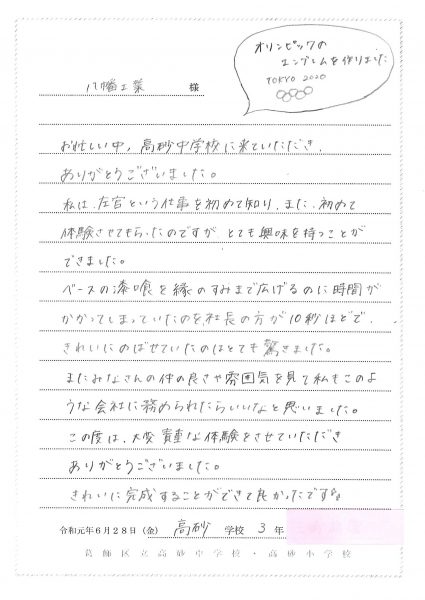 オリンピックの
エンブレムを作りました
TOKYO 2020
八幡工業 様
お忙しい中、高砂中学校に来ていただき、
ありがとうございました。
私は、左官という仕事を初めて知り、また、初めて
体験させてもらったのですが、とても興味を持つことが
できました。
ベースの漆喰を縁のすみまで広げるのに時間が
かかってしまっていたのを、社長の方が10秒ほどで、
きれいにのばせていたのはとても驚きました。
またみなさんの仲の良さや雰囲気を見て私もこのよ
うな会社に務められたらいいなと思いました。
この度は、大変貴重な体験をさせていただき
ありがとうございました。
きれいに完成することができて良かったです。
令和元年6月28日(金) 高砂 学校 3 年
葛飾区立高砂中学校・高砂小学校